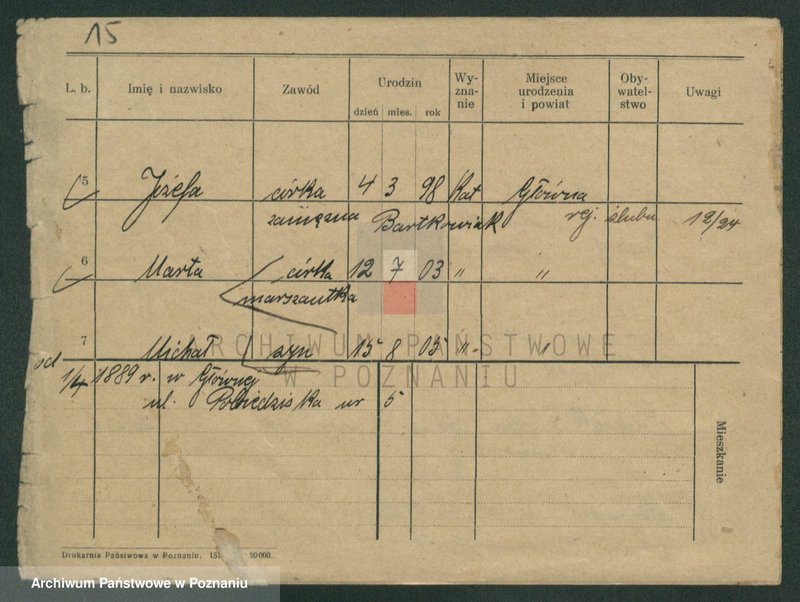 15
L. b. Imię i nazwisko Zawód Urodzin dzień mies. rok Wy-zna-nie Miejsce urodzenia i powiat Oby-watel-stwo Uwagi
5 Józefa córka 4 3 98 Kat Główna
zamężna Bartkowiak rej. ślubu 12/24
6 Marta córka 12 7 03 " "
7 Michał syn 15 8 05 " "
od 1/4 1889 r. w Głównej
ul. nr 5
Mieszkanie
ARCHIWUM PAŃSTWOWE
W POZNANIU
Drukarnia Państwowa w Poznaniu, 20000.
Archiwum Państwowe w Poznaniu